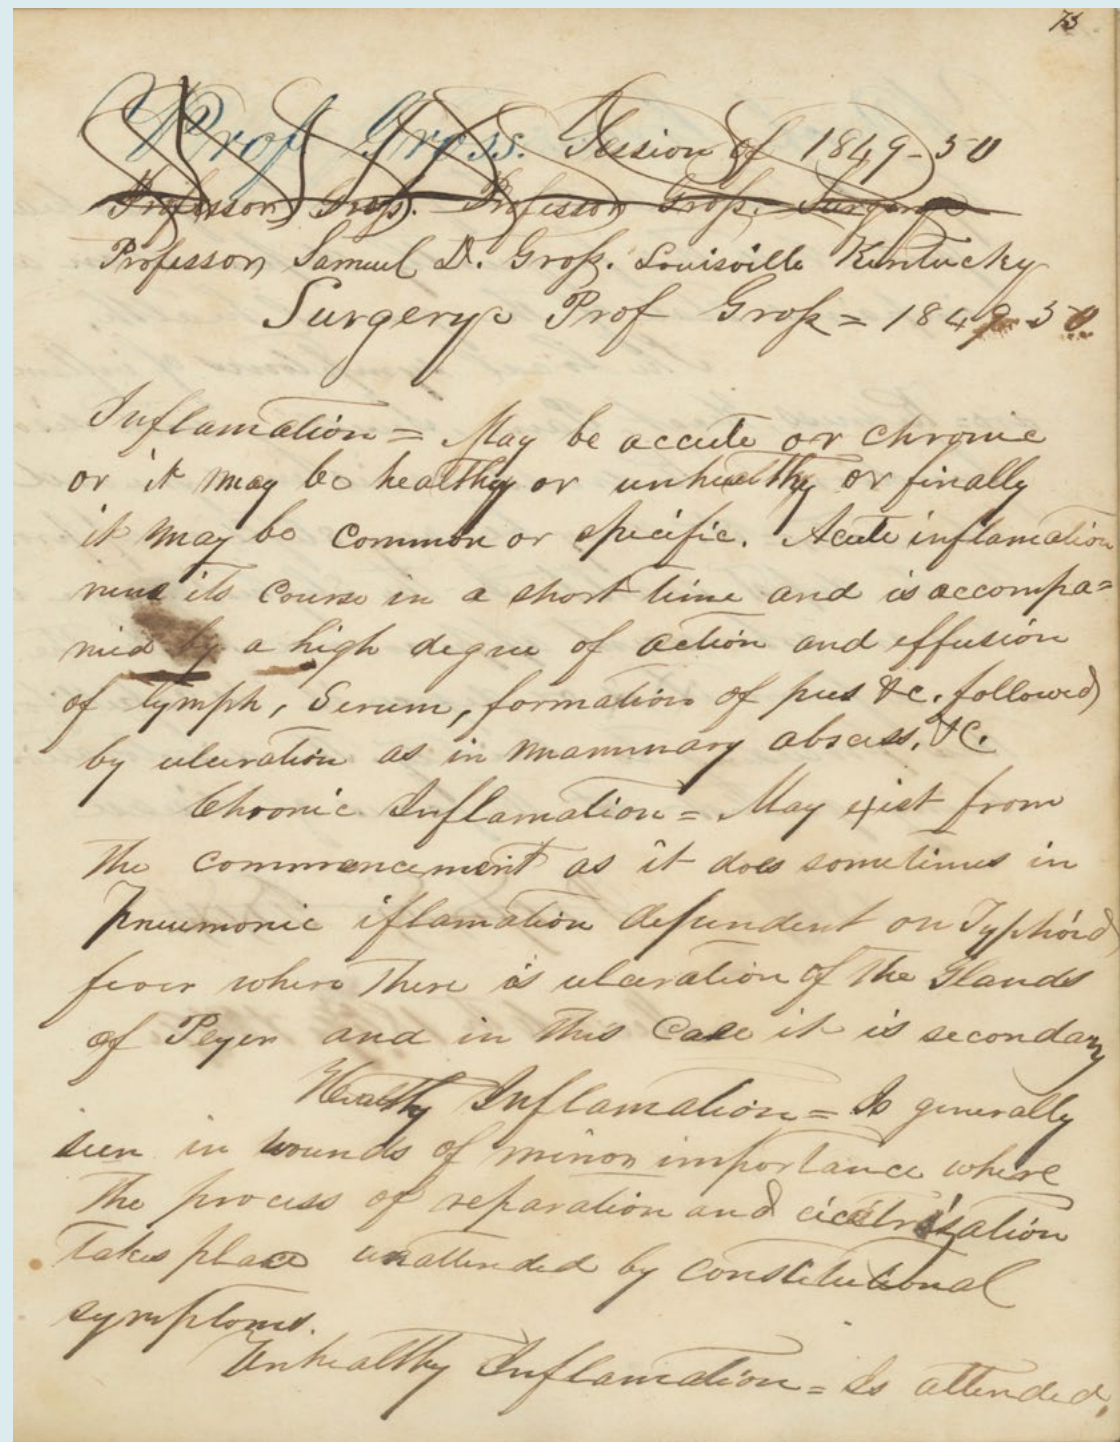 73
Prof Gross. Session of 1849-50
Professor Gross. Professor Gross. Surgery
Professor Samuel D. Gross. Louisville Kentucky
Surgery Prof Gross = 1849-50.
Inflamation = May be accute or chronic
or it may be healthy or unhealthy or finally
it may be common or specific. Acute inflamation
runs its course in a short time and is accompa=
nied by a high degree of action and effusion
of lymph, Serum, formation of pus &c. followed
by ulceration as in mammary abscess, &c.
Chronic Inflamation = May exist from
the commencement as it does sometimes in
Pneumonic iflamation dependent on Typhoid
fever where there is ulceration of the Glands
of Peyer and in this Case it is secondary
Healthy Inflamation = Is generally
seen in wounds of minor importance where
the process of reparation and cicatrization
takes place unattended by constitutional
symptoms.
Unhealthy Inflamation = Is attended,